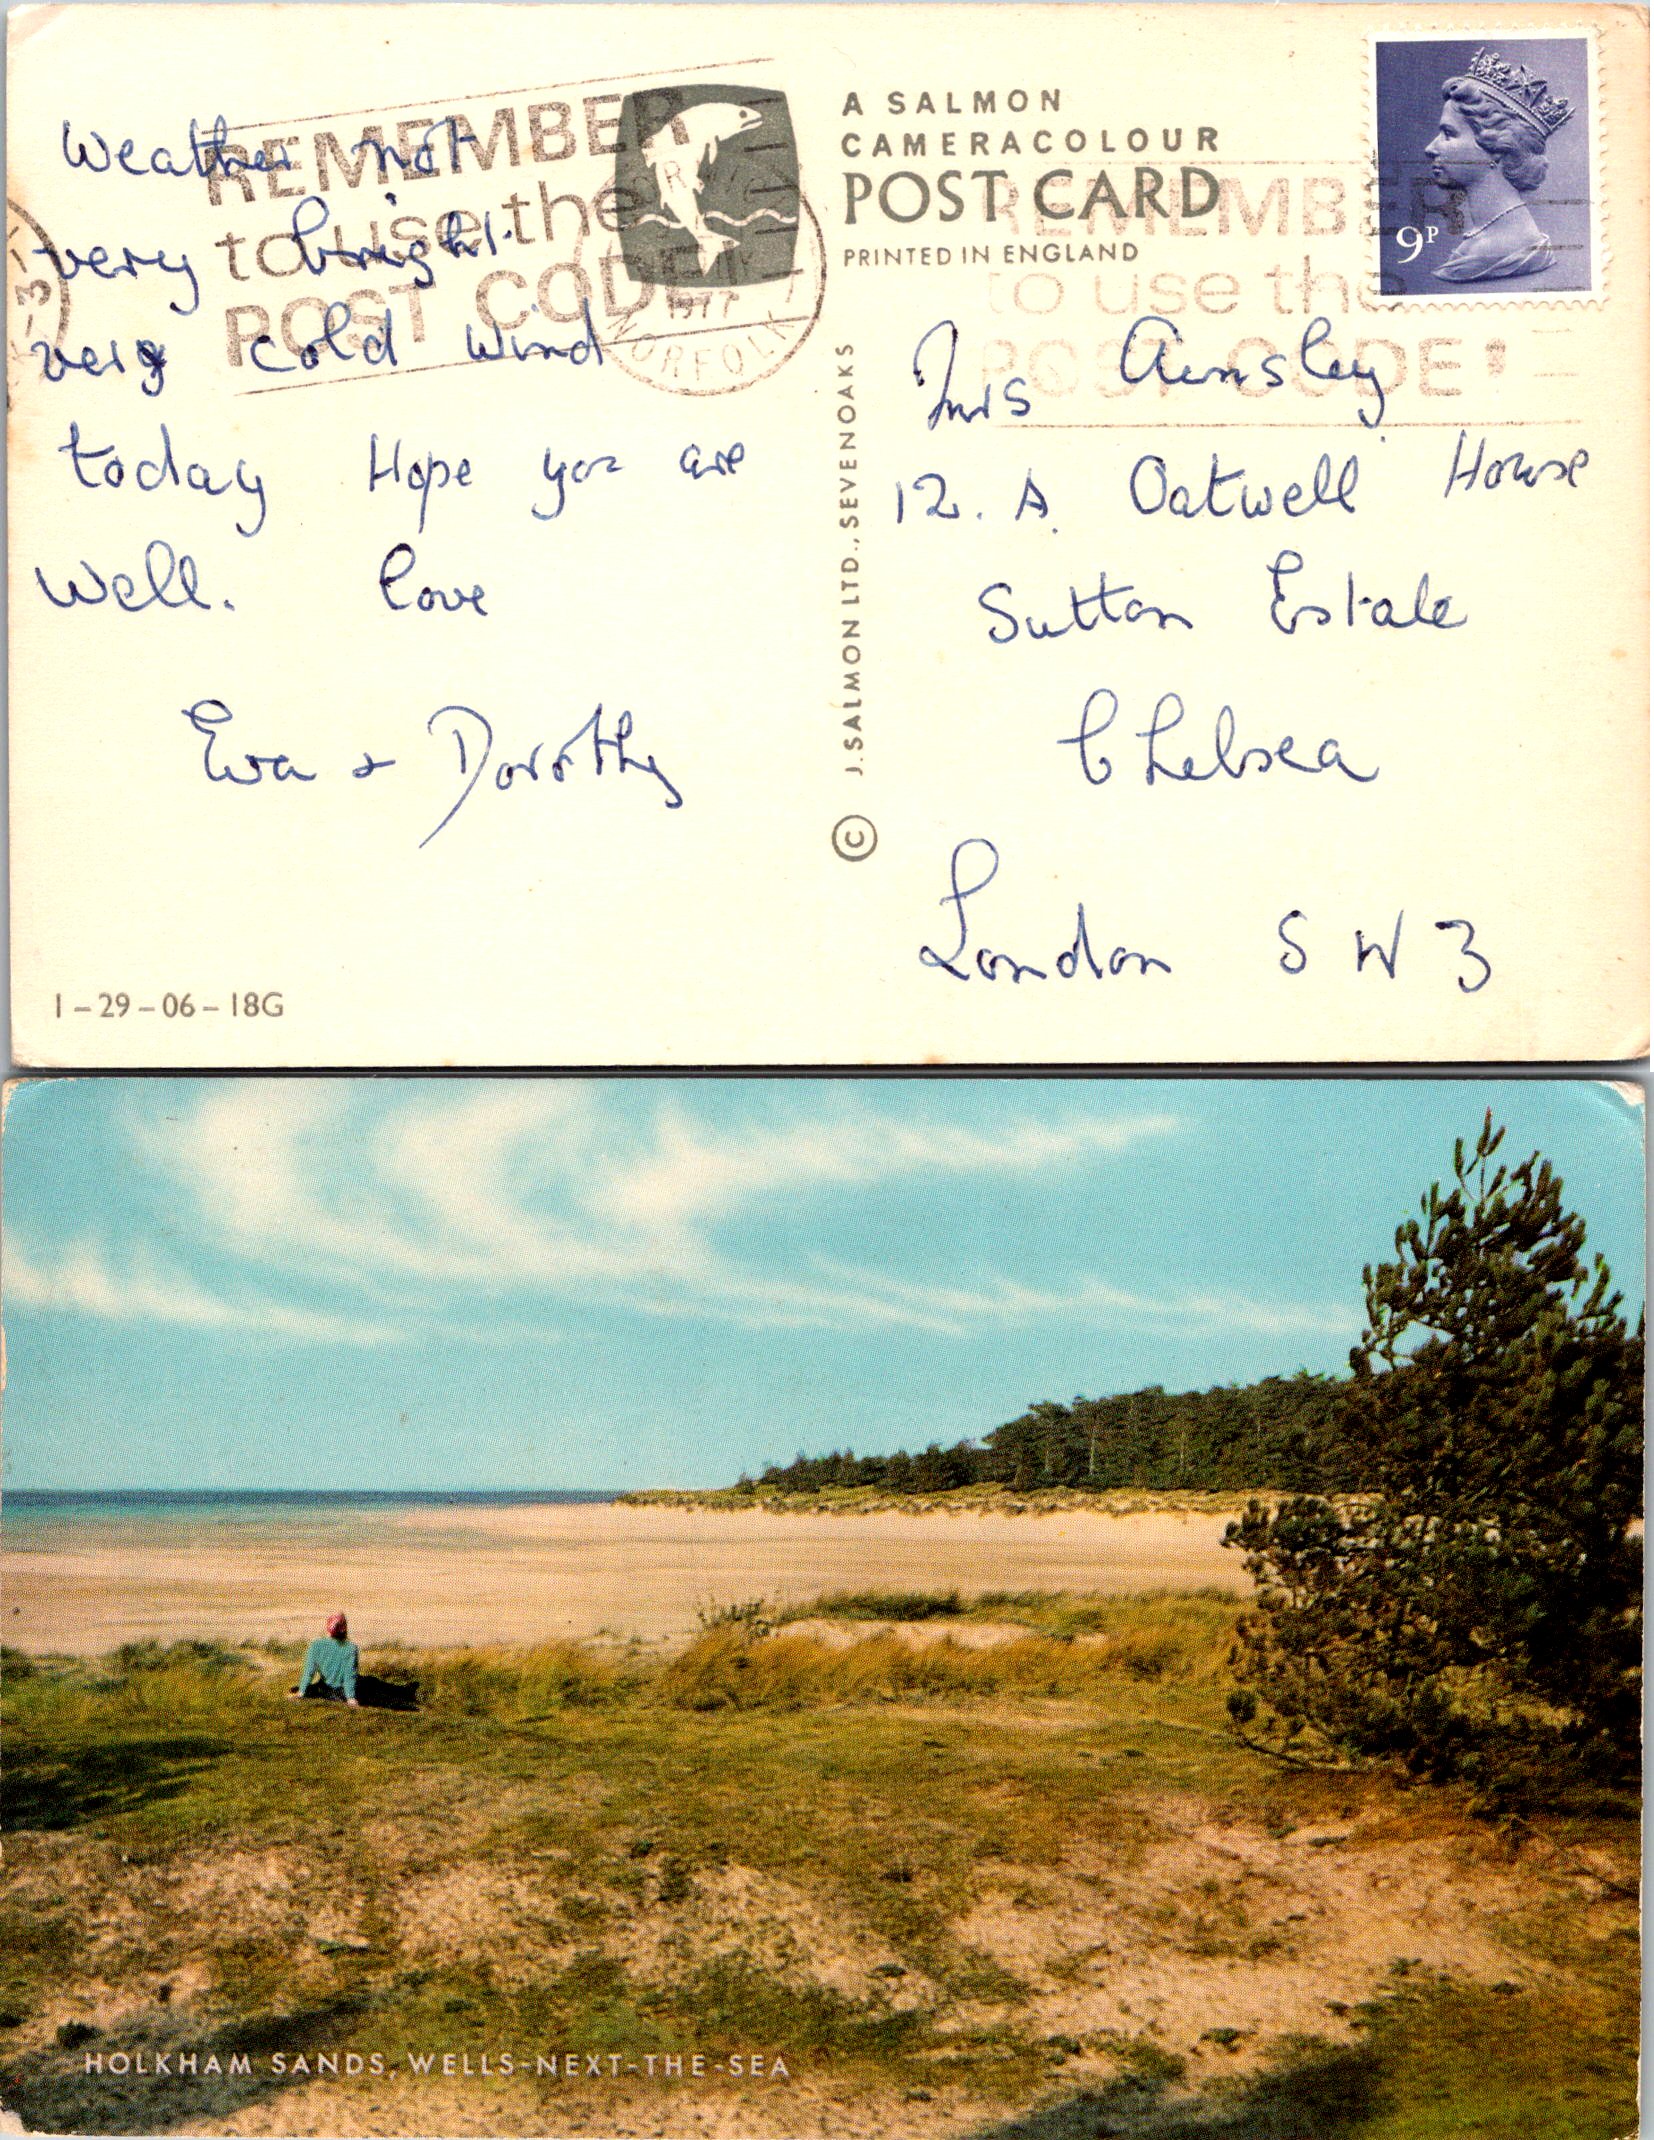 Weather not
very bright.
very cold wind
today Hope you are
well. love
Eva & Dorothy
1-29-06-18G
REMEMBER
to use the
POST CODE!
1977
NORFOLK
A SALMON
CAMERACOLOUR
POST CARD
PRINTED IN ENGLAND
© J. SALMON LTD., SEVENOAKS
9P
REMEMBER
to use the
POST CODE!
Mrs Ainsley
12. A. Oatwell House
Sutton Estate
Chelsea
London SW3
HOLKHAM SANDS, WELLS-NEXT-THE-SEA